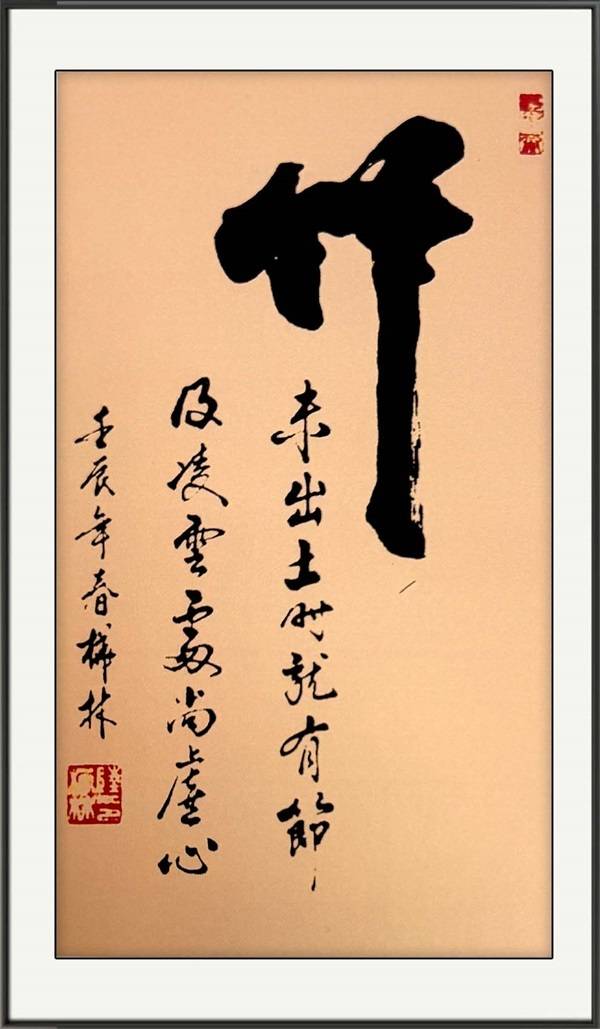 竹
未出土時就有節
及凌雲處尚虛心
壬辰年春林